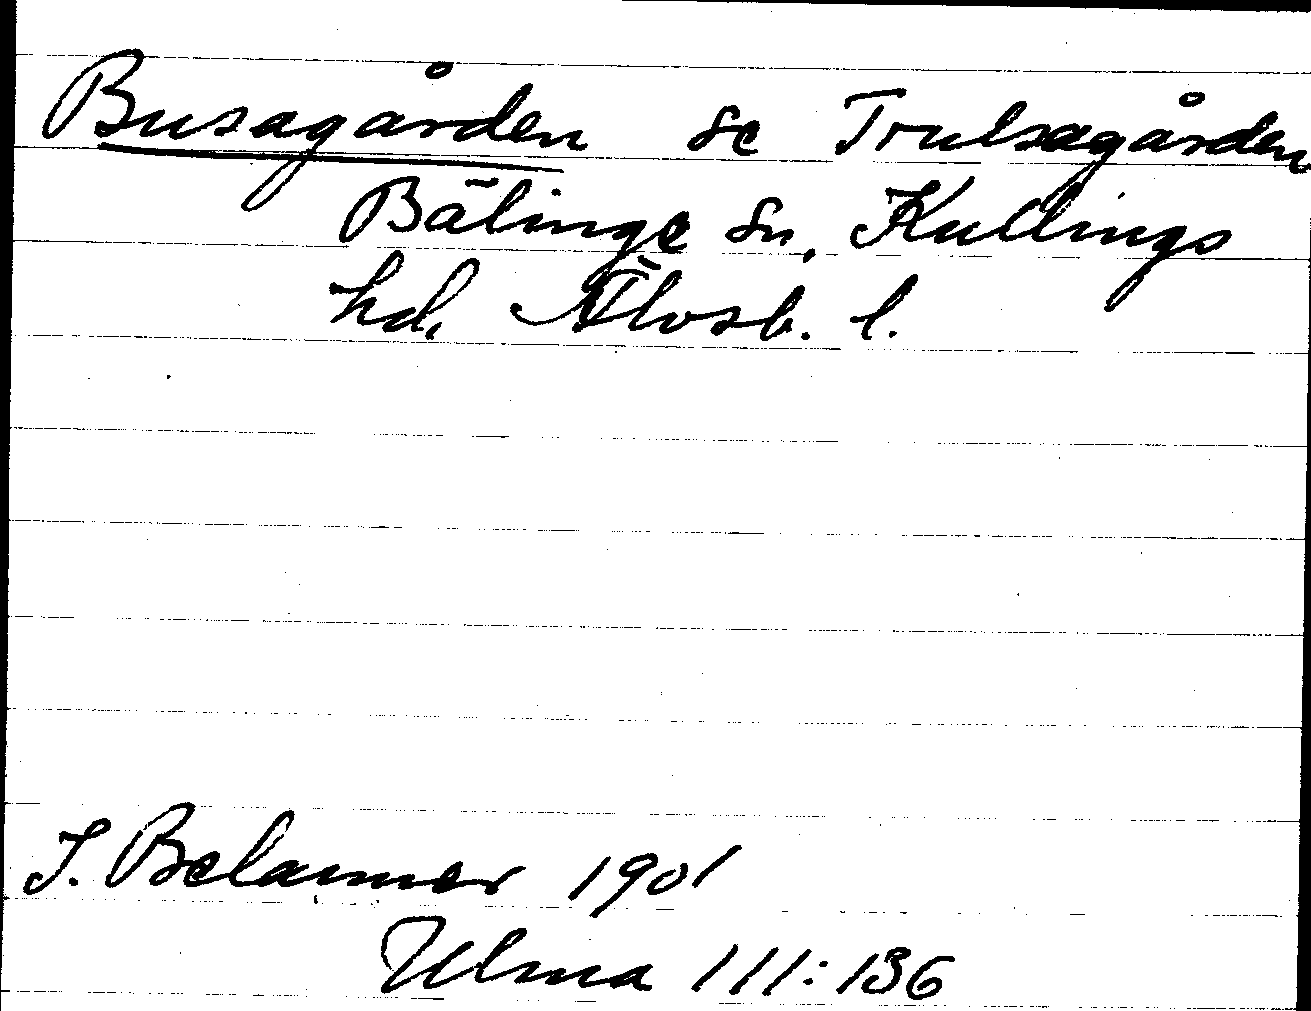 Busagården se Trulsagården
Bälinge sn, Kullings
hd, Älvsb. l.
J. Belanner 1901
Ulma 111:136